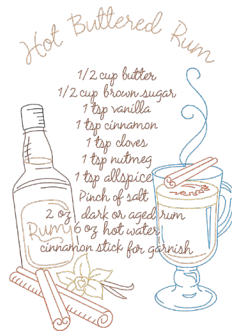 Hot Buttered Rum
1/2 cup butter
1/2 cup brown sugar
1 tsp vanilla
1 tsp cinnamon
1 tsp cloves
1 tsp nutmeg
1 tsp allspice
Pinch of salt
2 oz dark or aged rum
Rum
6 oz hot water
cinnamon stick for garnish